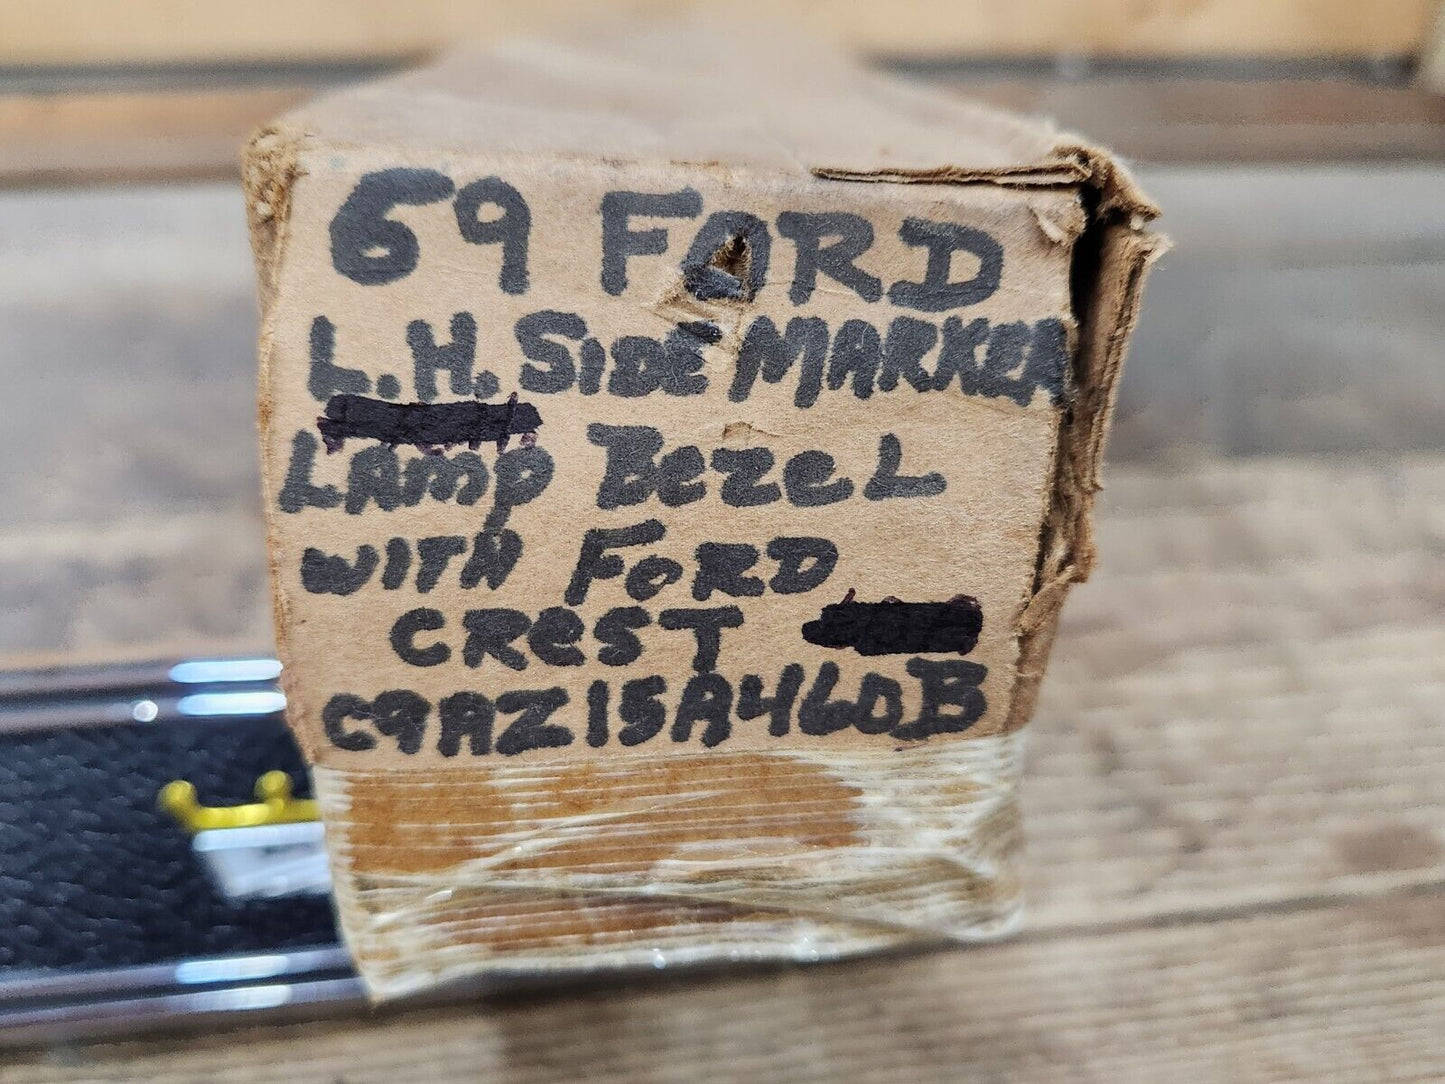 69 FORD
L.H. SIDE MARKER
LAmp BezeL
WITH FORD
CREST
C9AZ15A460B